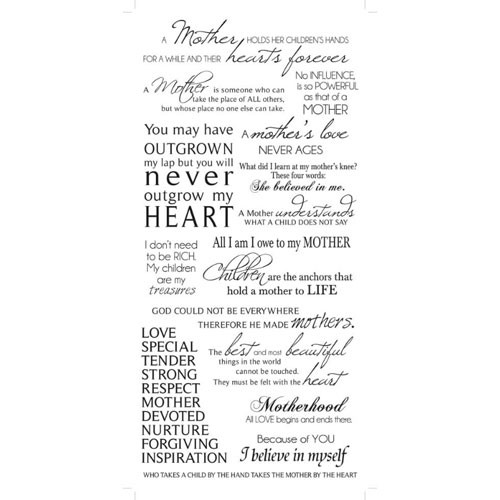 A Mother HOLDS HER CHILDREN'S HANDS
FOR A WHILE AND THEIR hearts forever
A Mother is someone who can
take the place of ALL others,
but whose place no one else can take.
No INFLUENCE,
is so POWERFUL
as that of a
MOTHER
You may have
OUTGROWN
my lap but you will
never
outgrow my
HEART
A mother's love
NEVER AGES
What did I learn at my mother's knee?
These four words:
She believed in me.
A Mother understands
WHAT A CHILD DOES NOT SAY
I don't need
to be RICH.
My children
are my
treasures
All I am I owe to my MOTHER
Children are the anchors that
hold a mother to LIFE
GOD COULD NOT BE EVERYWHERE
THEREFORE HE MADE mothers.
LOVE
SPECIAL
TENDER
STRONG
RESPECT
MOTHER
DEVOTED
NURTURE
FORGIVING
INSPIRATION
The best and most beautiful
things in the world
cannot be touched.
They must be felt with the heart
Motherhood
All LOVE begins and ends there.
Because of YOU
I believe in myself
WHO TAKES A CHILD BY THE HAND TAKES THE MOTHER BY THE HEART